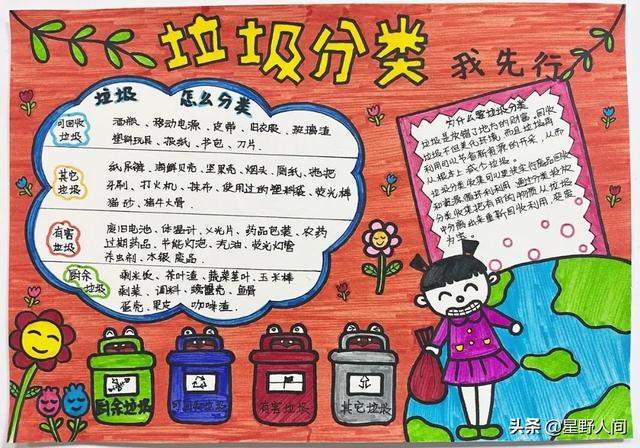 垃圾分类
我先行
垃圾 怎么分类
可回收
垃圾
酒瓶、移动电源、皮带、旧衣服、玻璃渣
塑料玩具、报纸、书包、刀片
其它
垃圾
纸尿裤、海鲜贝壳、坚果壳、烟头、厕纸、拖把
牙刷、打火机、抹布、使用过的塑料袋、荧光棒
猫砂、猪牛头骨
有害
垃圾
废旧电池、体温计、X光片、药品包装、农药
过期药品、节能灯泡、汽油、荧光灯管
杀虫剂、水银废品
厨余
垃圾
剩米饭、茶叶渣、蔬菜茎叶、玉米棒
剩菜、调料、螃蟹壳、鱼骨
蛋壳、果皮、咖啡渣
为什么要垃圾分类
垃圾是放错了地方的财富。回收
垃圾不但美化环境,而且垃圾再
利用可以节省新资源的开采,从而
从根本上减少垃圾。
垃圾分类收集可以使实行废品回收
和资源循环利用,通过分类投放
分类收集把有用的物质从垃圾
中分离出来重新回收利用,变废
为宝。
厨余垃圾
可回收垃圾
有害垃圾
其它垃圾
头条 @星野人间